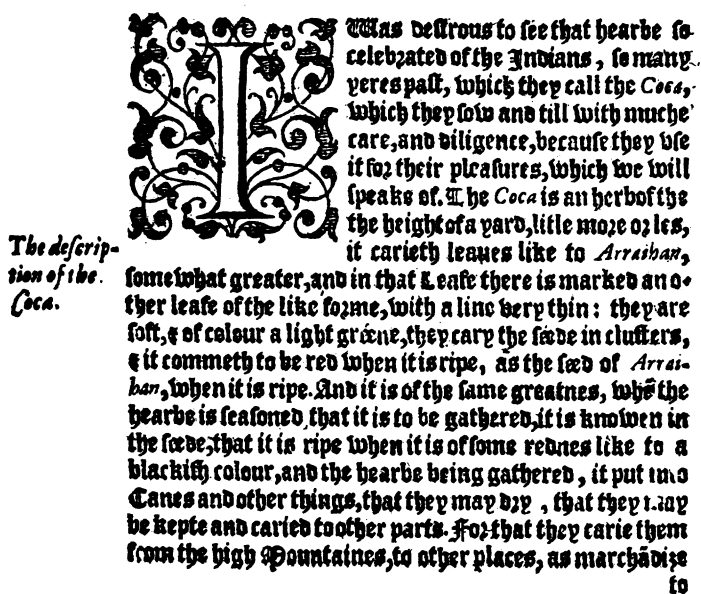 I Was desirous to sée that hearbe so
celebrated of the Indians, so many
yeres past, which they call the Coca,
which they sow and till with muche
care, and diligence, because they vse
it for their pleasures, which we will
speake of. The Coca is an herb of the
the height of a yard, litle more or les,
it carieth leaues like to Arraihan,
The descrip-
tion of the
Coca.
somewhat greater, and in that Leafe there is marked ano-
ther leafe of the like forme, with a line very thin: they are
soft, & of colour a light gréene, they cary the séede in clusters,
& it commeth to be red when it is ripe, as the séed of Arrai-
han, when it is ripe. And it is of the same greatnes, whẽ the
hearbe is seasoned that it is to be gathered, it is knowen in
the séede, that it is ripe when it is of some rednes like to a
blackish colour, and the hearbe being gathered, it put into
Canes and other things, that they may dry, that they may
be kepte and caried to other parts. For that they carie them
from the high Mountaines, to other places, as marchãdize
to